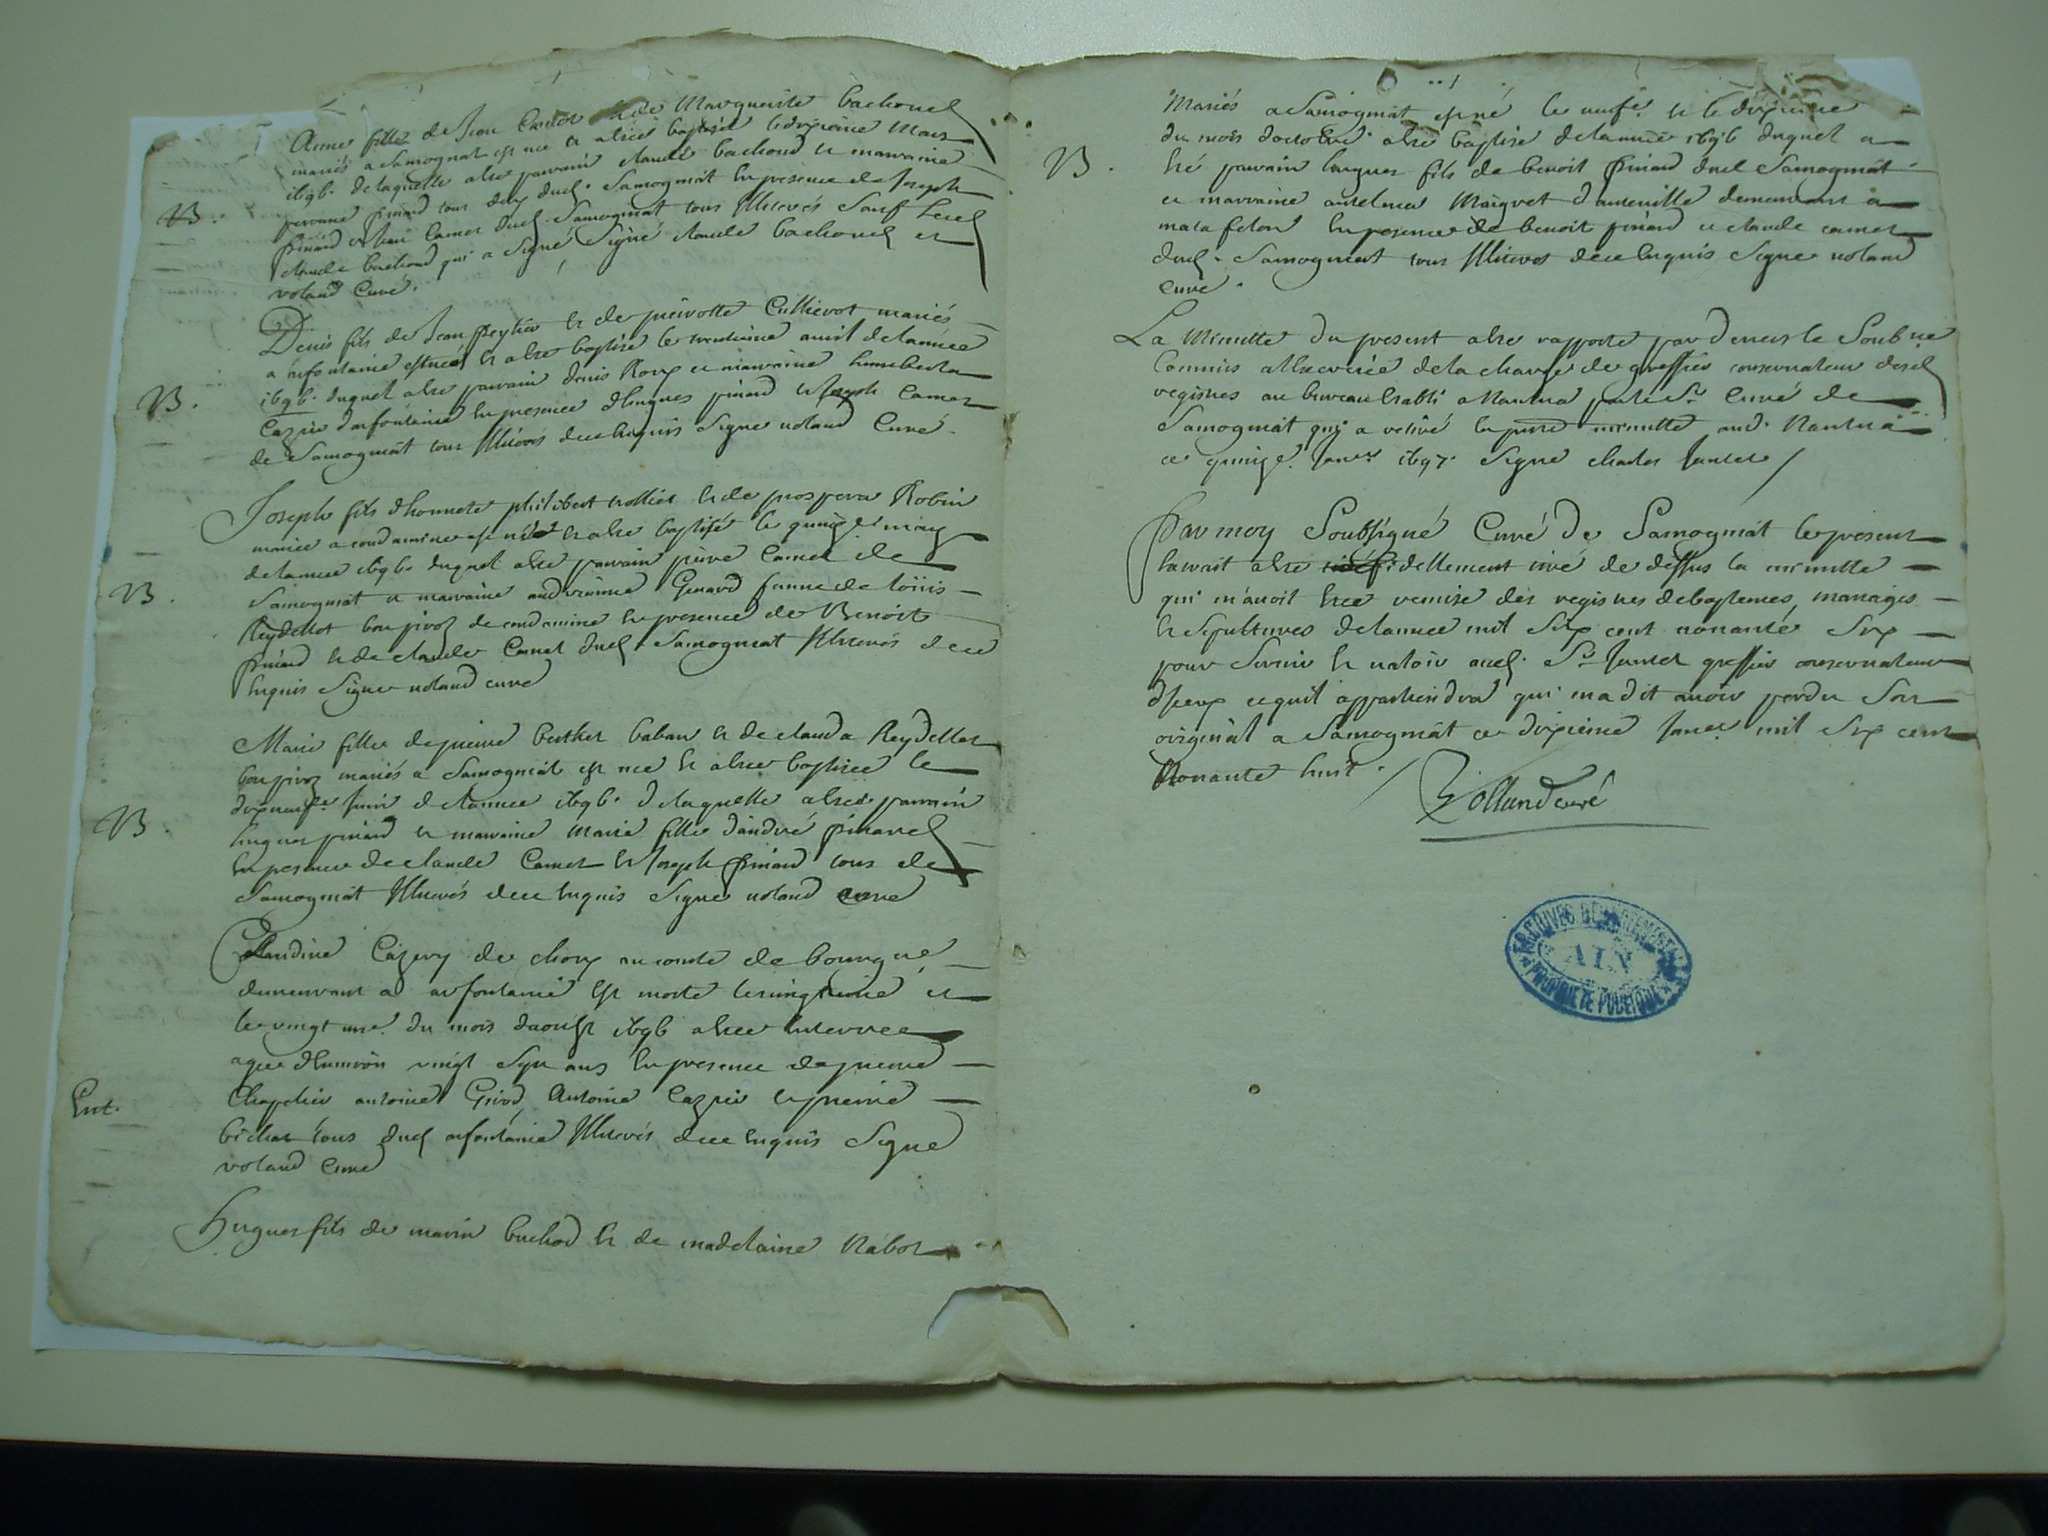 Anne fille de Jean Camet et de Marguerite bachoud
mariés a Samognat est nee et a bap le dixieme Mars
1696. de laquelle parrain claude bachoud et marraine
pinard tous deux dud. Samognat en presence de Joseph
pinard et Camet dud. Samognat tous sauf led
claude bachoud qui a signé, signé claude bachoud et
volland Curé.
B.
Denis fils de Jean peytier et de pierrotte Cullierot mariés
a arfontaine est né et baptisé le avril de lannee
1696. duquel parrain denis Roux et marraine humberta
Cazier darfontaine en presence dhugues pinard et Joseph Camet
de Samognat tous Illiterés de ce enquis signé voland Curé.
B.
Joseph fils dhonnete philibert trollier et de prospera Robin
mariés a condamine est né et baptisé le quinze may
de lannee 1696 duquel parrain pierre Camet de
Samognat et marraine andrianne Genard femme de loüis
Reydellet bonpivoz de condamine en presence de Benoit
pinard et de claude Camet dud. Samognat Illiterés de ce
enquis signé voland curé
B.
Marie fille de pierre berthet baban et de clauda Reydellet
bonpivoz mariés a Samognat est nee et baptisee le
dixneufe. Juin de lannee 1696. de laquelle parrain
hugues pinard et marraine Marie fille dandré pinard
en presence de claude Camet et Joseph pinard tous de
Samognat Illiterés de ce enquis signé voland curé
B.
Claudine Cazery de choux au comté de bourgne
demeurant a arfontaine est morte le vingtieme et
le vingt une. du mois daoust 1696 enterree
agee denviron vingt sept ans en presence de pierre
Chapelier antoine Girod, Antoine Cazier et pierre
bichat tous dud arfontaine Illiterés de ce enquis signé
voland curé
Ent.
Hugues fils de marin buchod et de madelaine Rabot
Mariés a Samognat est né le neufe. et le dixieme
du mois doctobre baptisé de lannee 1696 duquel a
parrain hugues fils de benoit pinard dud Samognat
et marraine antelmea Maigret danteville demeurant a
matafelon en presence de benoit pinard et claude camet
dud. Samognat tous Illiterés de ce enquis signé voland
curé.
B.
La Minutte du present rapporté par devers le soubne
Commis a lexercice de la charge de greffier conservateur desd
registres au bureau establi a Nantua par le Sr. Curé de
Samognat qui a retiré la minutte aud. Nantua
ce quinze. Janer. 1697. signé charles Jantet /
Par moy Soubsigné Curé de Samognat le present
fidellement tiré de dessus la minutte
qui m'avoit remise des registres de baptemes, mariages
et sepultures de lannee mil six cent nonante six
pour servir et valoir aud. Sr Jantet greffier conservateur
ce quil appartiendra qui ma dit avoir perdu son
original a Samognat ce dixieme Janer. mil six cent
Nonante huit. /
Vollandcuré
ARCHIVES DEPARTEMENTALES
AIN
PROPRIETE PUBLIQUE